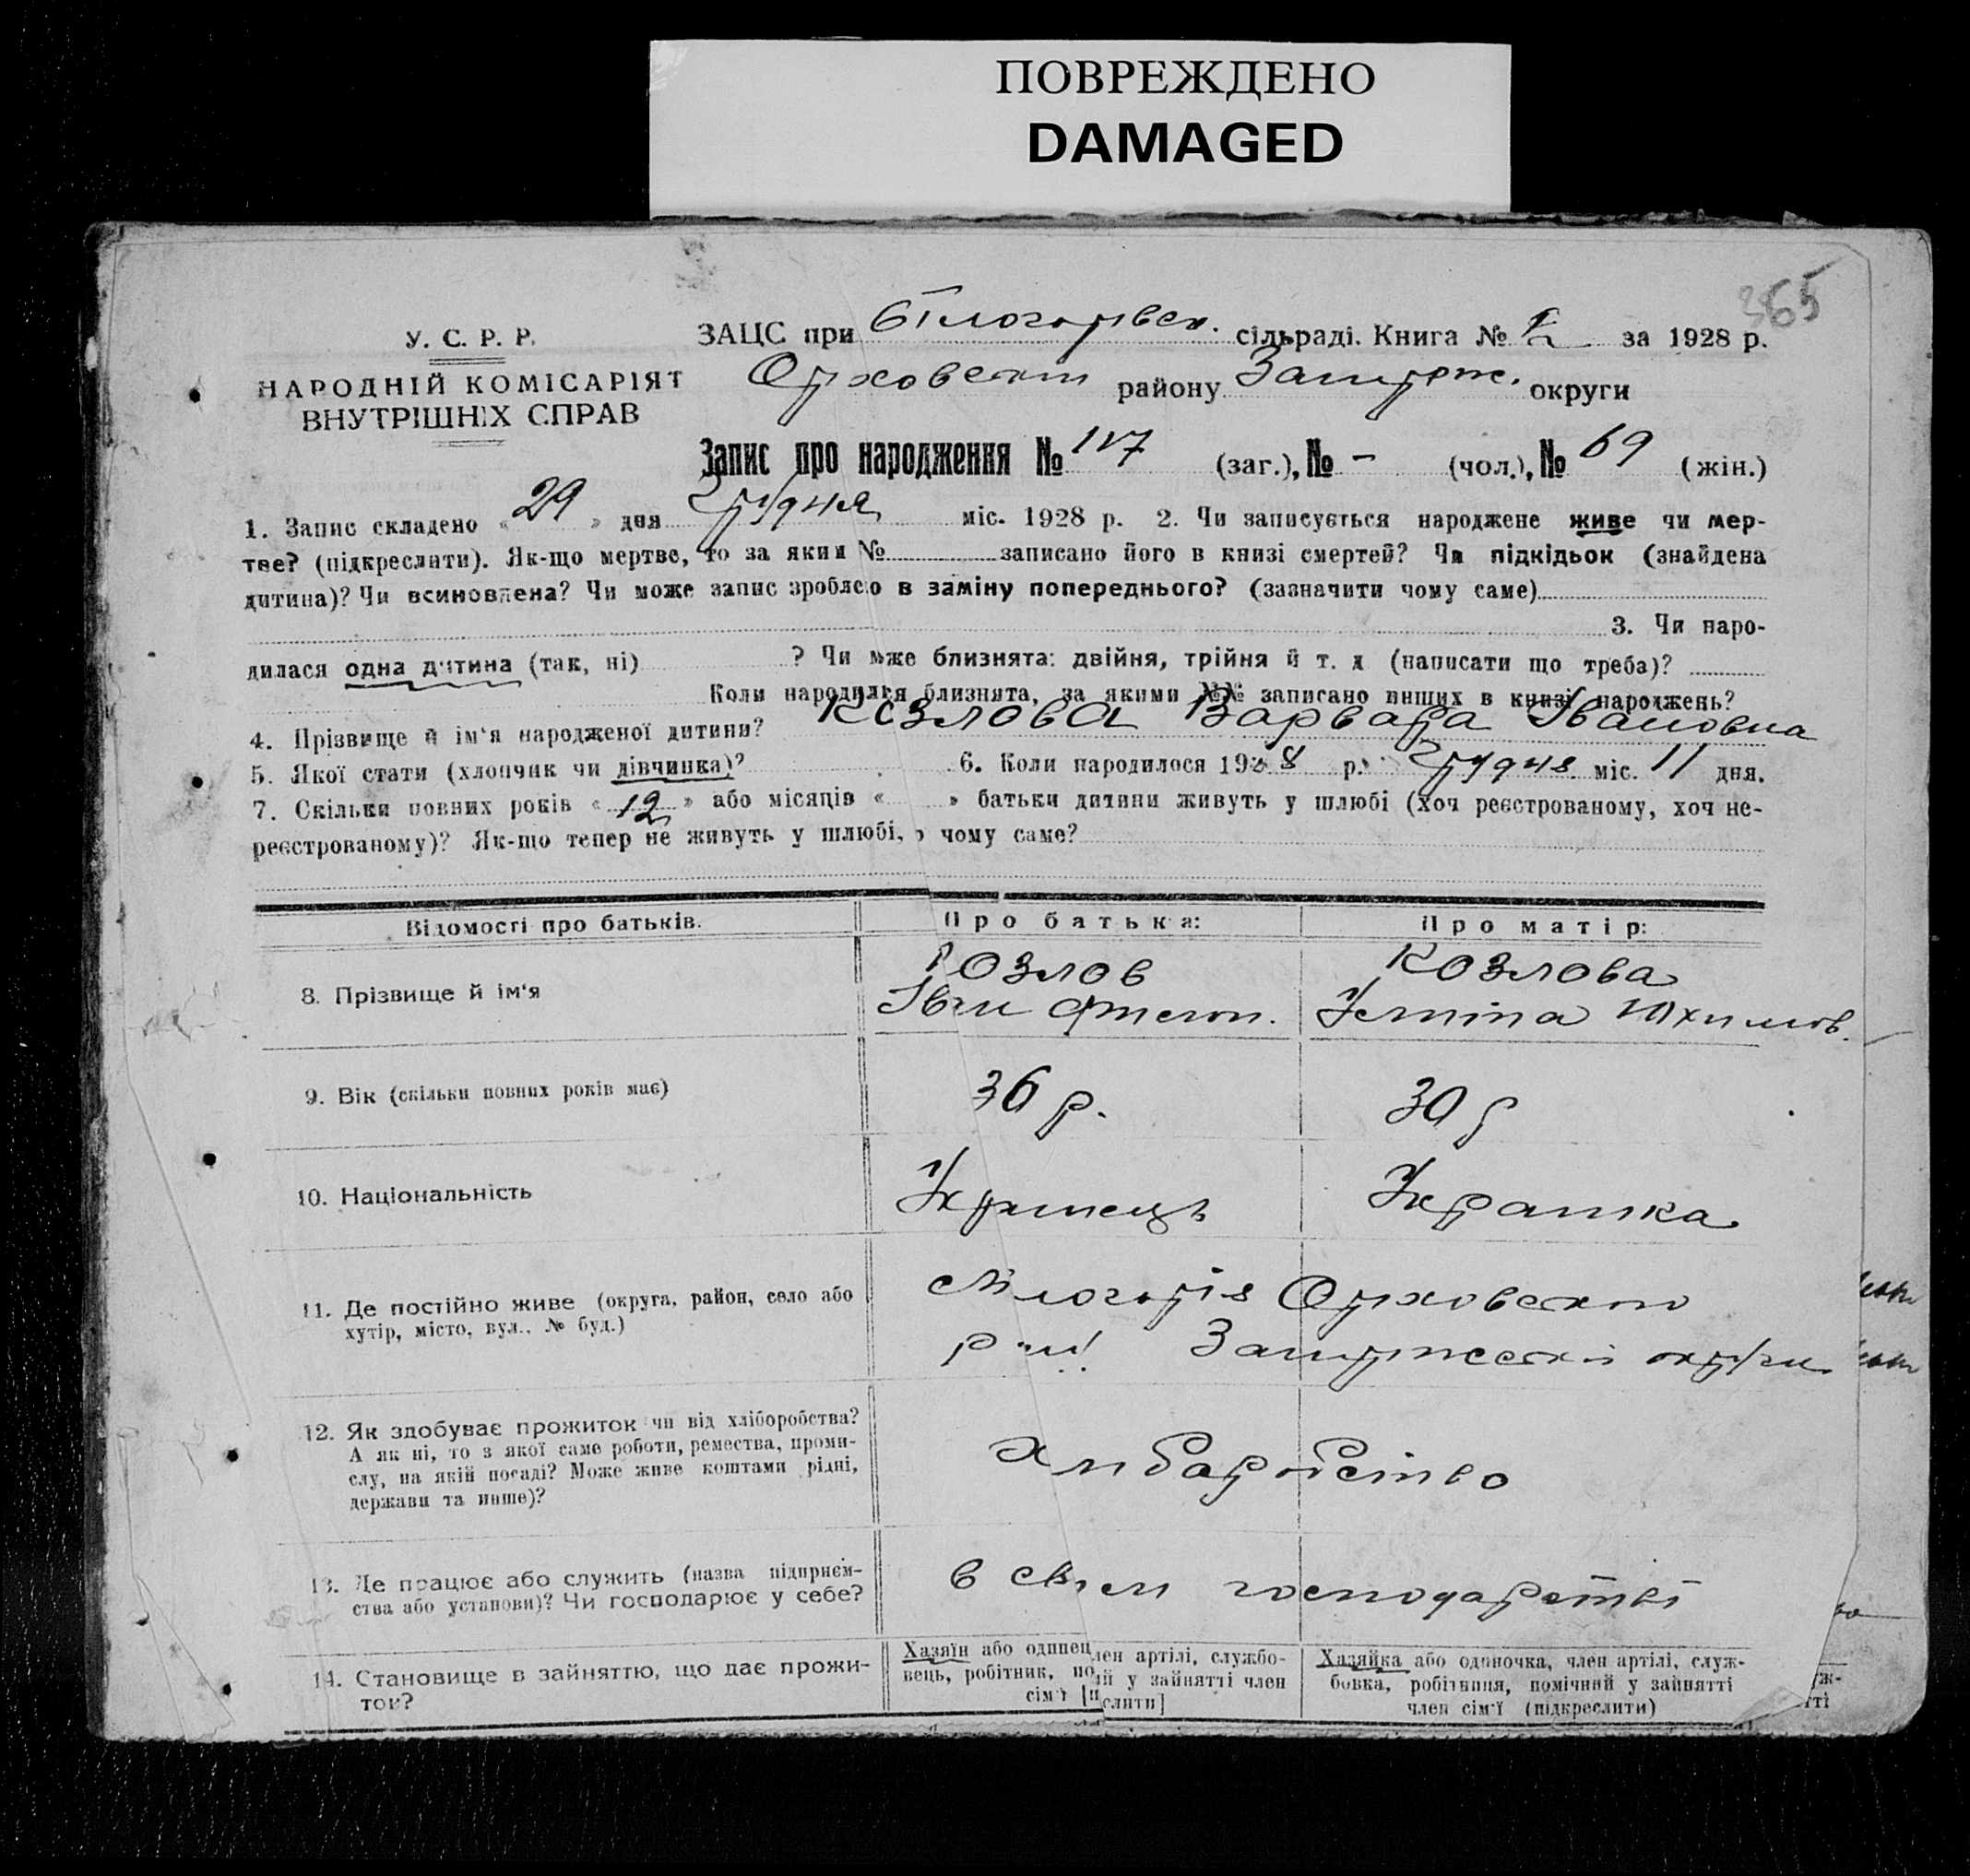 ПОВРЕЖДЕНО
DAMAGED
365
У. С. Р. Р.
НАРОДНІЙ КОМІСАРІЯТ
ВНУТРІШНІХ СПРАВ
ЗАЦС при Білогорівск. сільраді. Книга № 2 за 1928 р.
Оріховского району Запоріж. округи
Запис про народження № 117 (заг.), № – (чол.), № 69 (жін.)
1. Запис складено « 29 » дня Грудня міс. 1928 р. 2. Чи записується народжене живе чи мер-
тве? (підкреслити). Як-що мертве, то за яким № записано його в книзі смертей? Чи підкідьок (знайдена
дитина)? Чи всиновлена? Чи може запис зроблено в заміну попереднього? (зазначити чому саме)
3. Чи наро-
дилася одна дитина (так, ні) ? Чи може близнята: двійня, трійня й т. д (написати що треба)?
Коли народилися близнята, за якими №№ записано инших в книзі народжень?
4. Прізвище й ім'я народженої дитини? Козлова Варвара Івановна
5. Якої стати (хлопчик чи дівчинка)? 6. Коли народилося 1928 р. Грудня міс. 11 дня.
7. Скільки повних років « 12 » або місяців « » батьки дитини живуть у шлюбі (хоч реєстрованому, хоч не-
реєстрованому)? Як-що тепер не живуть у шлюбі, о чому саме?
Відомості про батьків. Про батька: Про матір:
8. Прізвище й ім'я
Козлов Козлова
Іван Устіна Юхимов.
9. Вік (скільки повних років має) 36 р. 30 р
10. Національність Українець Українка
11. Де постійно живе (округа, район, село або
хутір, місто, вул., № буд.)
Білогорія Оріховского
район Запоріжскої округи
12. Як здобуває прожиток чи від хліборобства?
А як ні, то з якої саме роботи, ремества, проми-
слу, на якій посаді? Може живе коштами рідні,
держави та инше)?
Хліборобство
13. Де працює або служить (назва підприєм-
ства або установи)? Чи господарює у себе?
в своєм господарстві
14. Становище в зайняттю, що дає прожи-
ток?
Хазяїн або одинец лен артілі, службо-
вець, робітник, по ий у зайнятті член
сім'ї [п слити]
Хазяйка або одиночка, член артілі, служ-
бовка, робітниця, помічний у зайнятті
член сім'ї (підкреслити)